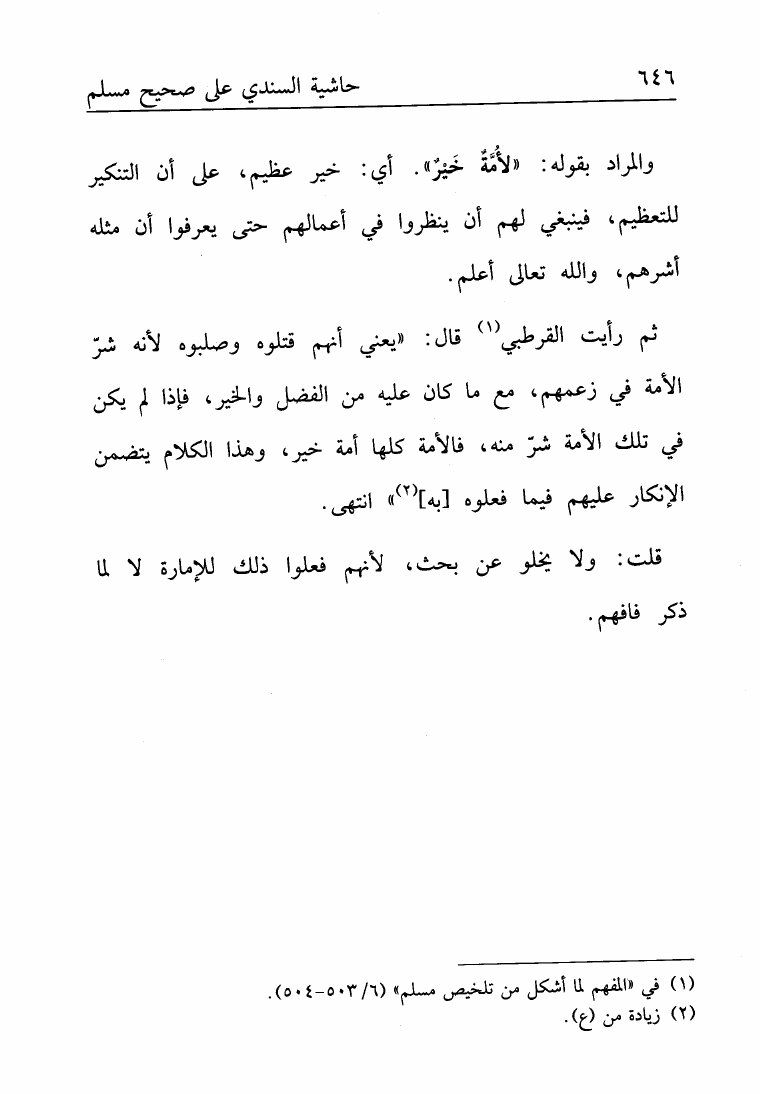 ٦٤٦
حاشية السندي على صحيح مسلم
والمراد بقوله: «لأُمَّةٌ خَيْرٌ». أي: خير عظيم، على أن التنكير
للتعظيم، فينبغي لهم أن ينظروا في أعمالهم حتى يعرفوا أن مثله
أشرهم، والله تعالى أعلم.
ثم رأيت القرطبي(١) قال: «يعني أنهم قتلوه وصلبوه لأنه شرّ
الأمة في زعمهم، مع ما كان عليه من الفضل والخير، فإذا لم يكن
في تلك الأمة شرّ منه، فالأمة كلها أمة خير، وهذا الكلام يتضمن
الإنكار عليهم فيما فعلوه [به](٢)» انتهى.
قلت: ولا يخلو عن بحث، لأنهم فعلوا ذلك للإمارة لا لما
ذكر فافهم.
(١) في «المفهم لما أشكل من تلخيص مسلم» (٦/ ٥٠٣-٥٠٤).
(٢) زيادة من (ع).